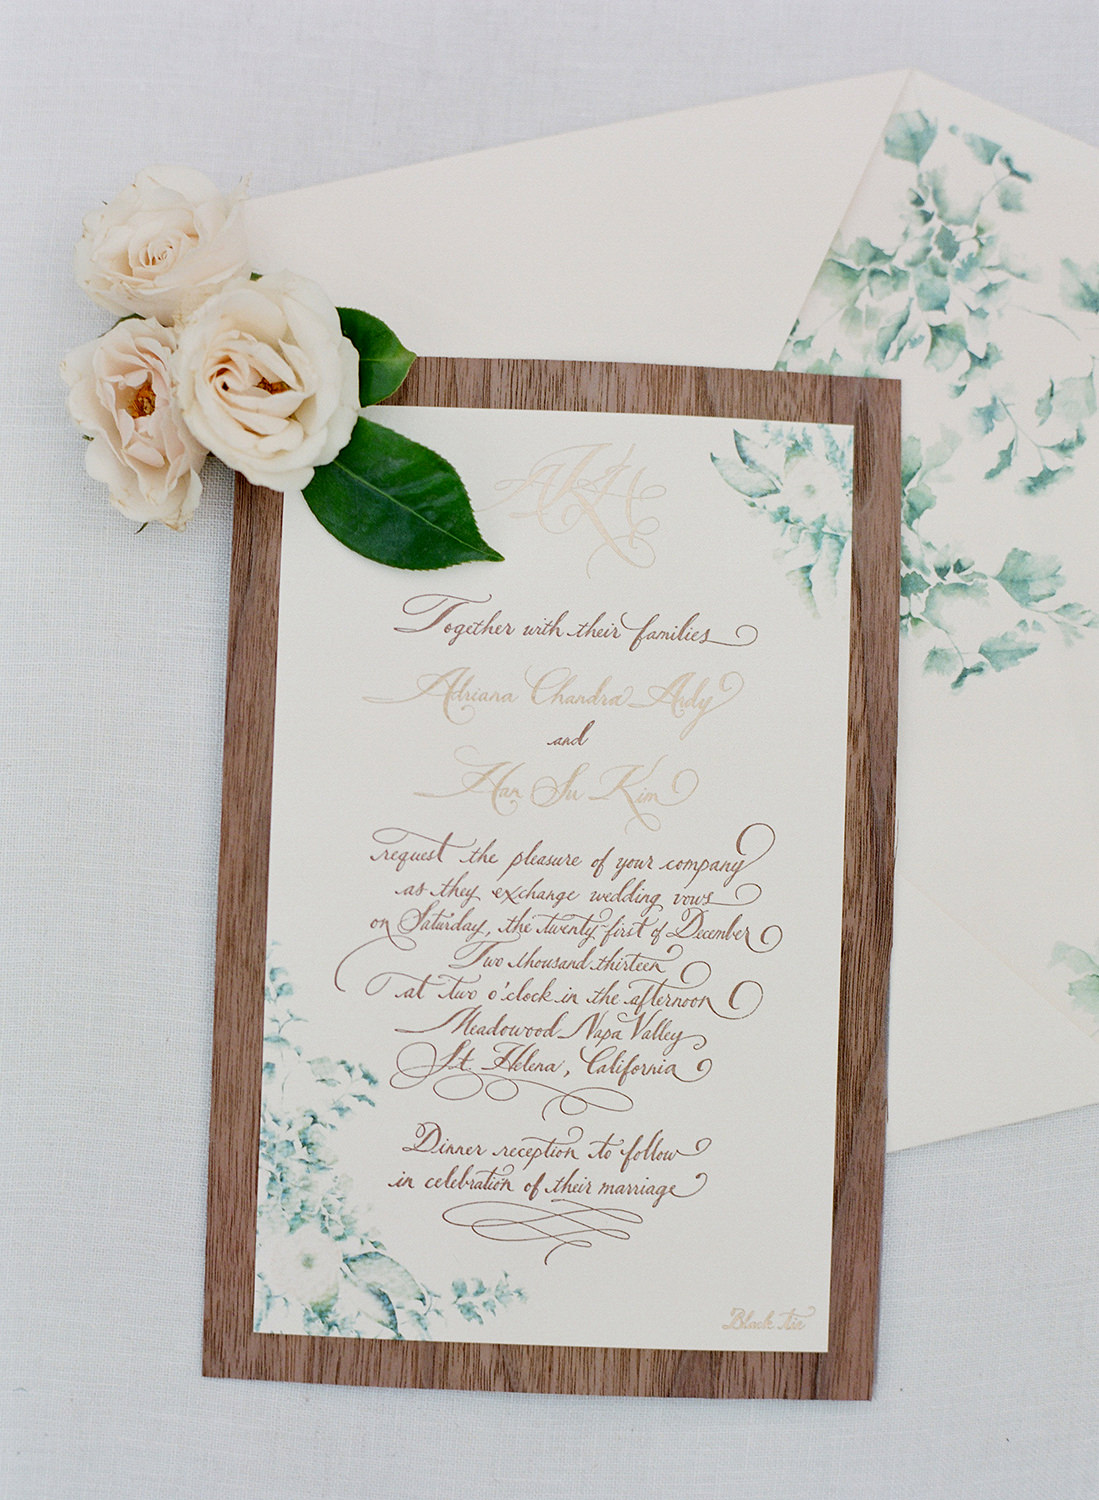 AKH
Together with their families
Adriana Chandra Ardy
and
Han Su Kim
request the pleasure of your company
as they exchange wedding vows
on Saturday, the twenty-first of December
Two thousand thirteen
at two o'clock in the afternoon
Meadowood Napa Valley
St. Helena, California
Dinner reception to follow
in celebration of their marriage
Black tie